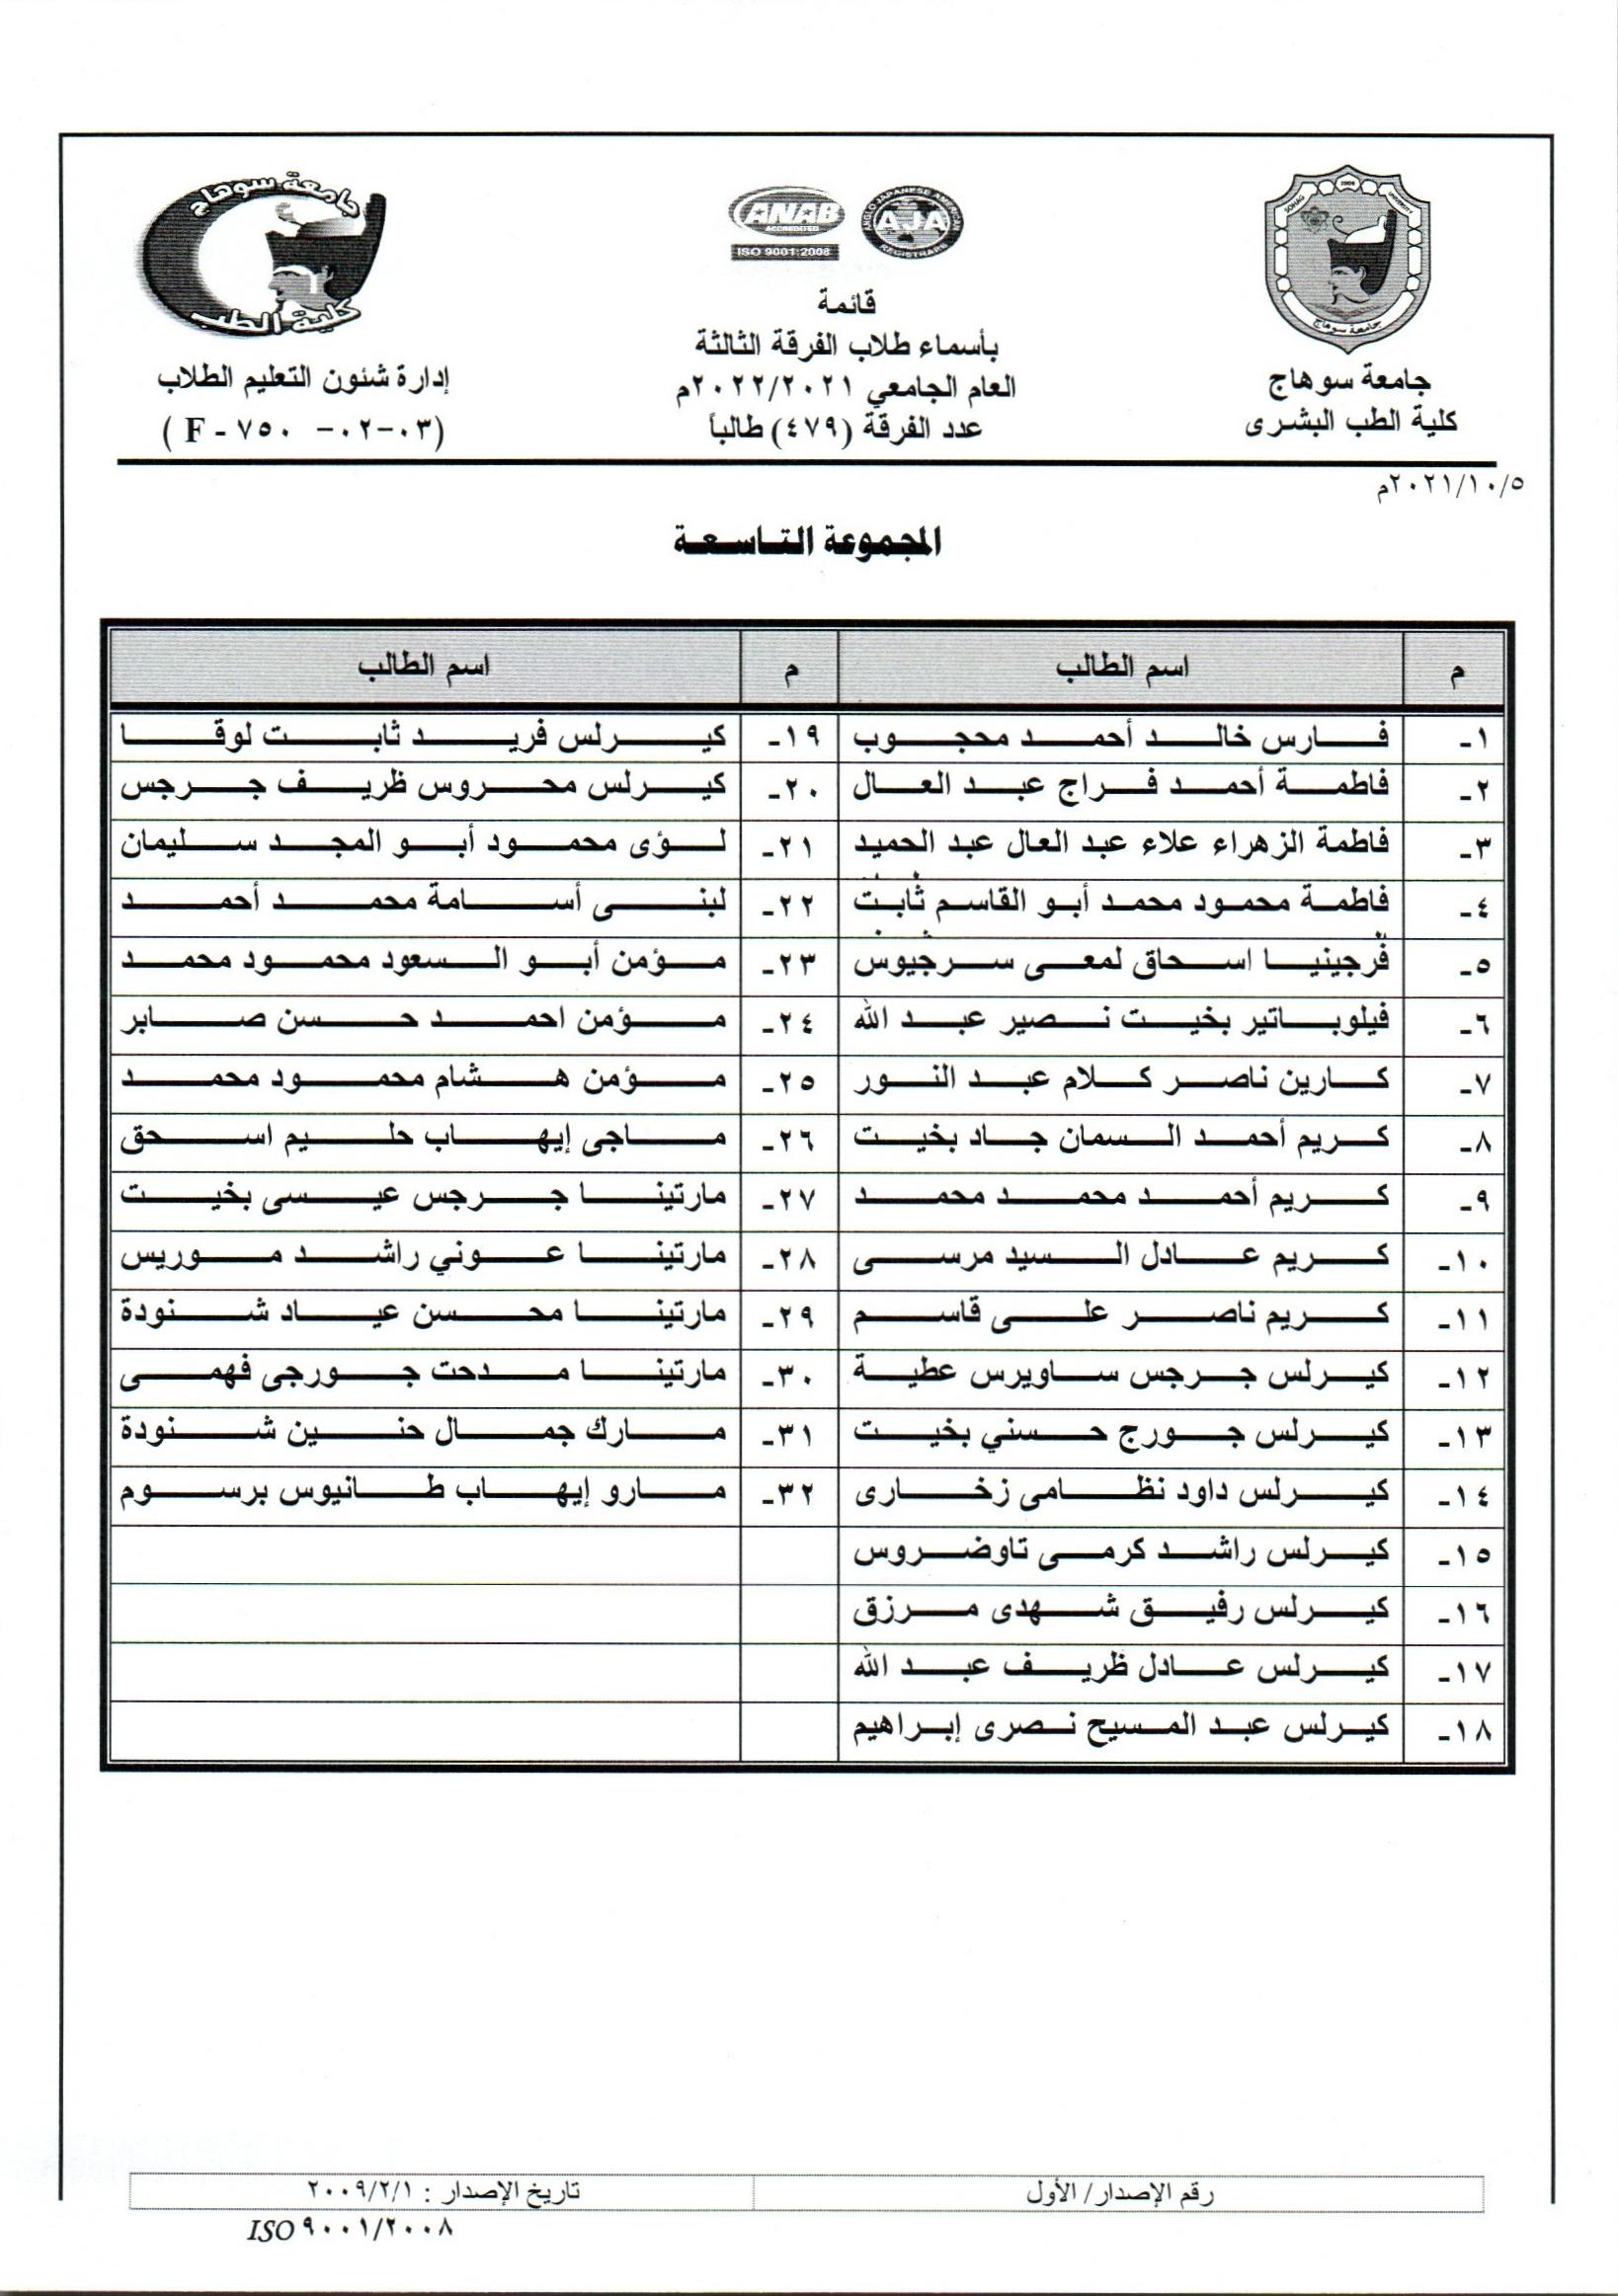 جامعة سوهاج
كلية الطب البشرى
SOHAG UNIVERSITY
2006
جامعة سوهاج
ANAB
ACCREDITED
ISO 9001:2008
ANGLO JAPANESE AMERICAN
AJA
REGISTRARS
قائمة
بأسماء طلاب الفرقة الثالثة
العام الجامعي ٢٠٢٢/٢٠٢١م
عدد الفرقة (٤٧٩) طالباً
جامعة سوهاج
كلية الطب
إدارة شئون التعليم الطلاب
(٠٣-٠٢- ٧٥٠ - F )
٢٠٢١/١٠/٥م
المجموعة التاسعة
م اسم الطالب م اسم الطالب
١- فارس خالد أحمد محجوب ١٩- كيرلس فريد ثابت لوقا
٢- فاطمة أحمد فراج عبد العال ٢٠- كيرلس محروس ظريف جرجس
٣- فاطمة الزهراء علاء عبد العال عبد الحميد ٢١- لؤى محمود أبو المجد سليمان
٤- فاطمة محمود محمد أبو القاسم ثابت ٢٢- لبنى أسامة محمد أحمد
٥- فرجينيا اسحاق لمعى سرجيوس ٢٣- مؤمن أبو السعود محمود محمد
٦- فيلوباتير بخيت نصير عبد الله ٢٤- مؤمن احمد حسن صابر
٧- كارين ناصر كلام عبد النور ٢٥- مؤمن هشام محمود محمد
٨- كريم أحمد السمان جاد بخيت ٢٦- ماجى إيهاب حليم اسحق
٩- كريم أحمد محمد محمد ٢٧- مارتينا جرجس عيسى بخيت
١٠- كريم عادل السيد مرسى ٢٨- مارتينا عوني راشد موريس
١١- كريم ناصر على قاسم ٢٩- مارتينا محسن عياد شنودة
١٢- كيرلس جرجس ساويرس عطية ٣٠- مارتينا مدحت جورجى فهمى
١٣- كيرلس جورج حسني بخيت ٣١- مارك جمال حنين شنودة
١٤- كيرلس داود نظامى زخارى ٣٢- مارو إيهاب طانيوس برسوم
١٥- كيرلس راشد كرمى تاوضروس
١٦- كيرلس رفيق شهدى مرزق
١٧- كيرلس عادل ظريف عبد الله
١٨- كيرلس عبد المسيح نصرى إبراهيم
رقم الإصدار/ الأول تاريخ الإصدار : ٢٠٠٩/٢/١
ISO ٩٠٠١/٢٠٠٨